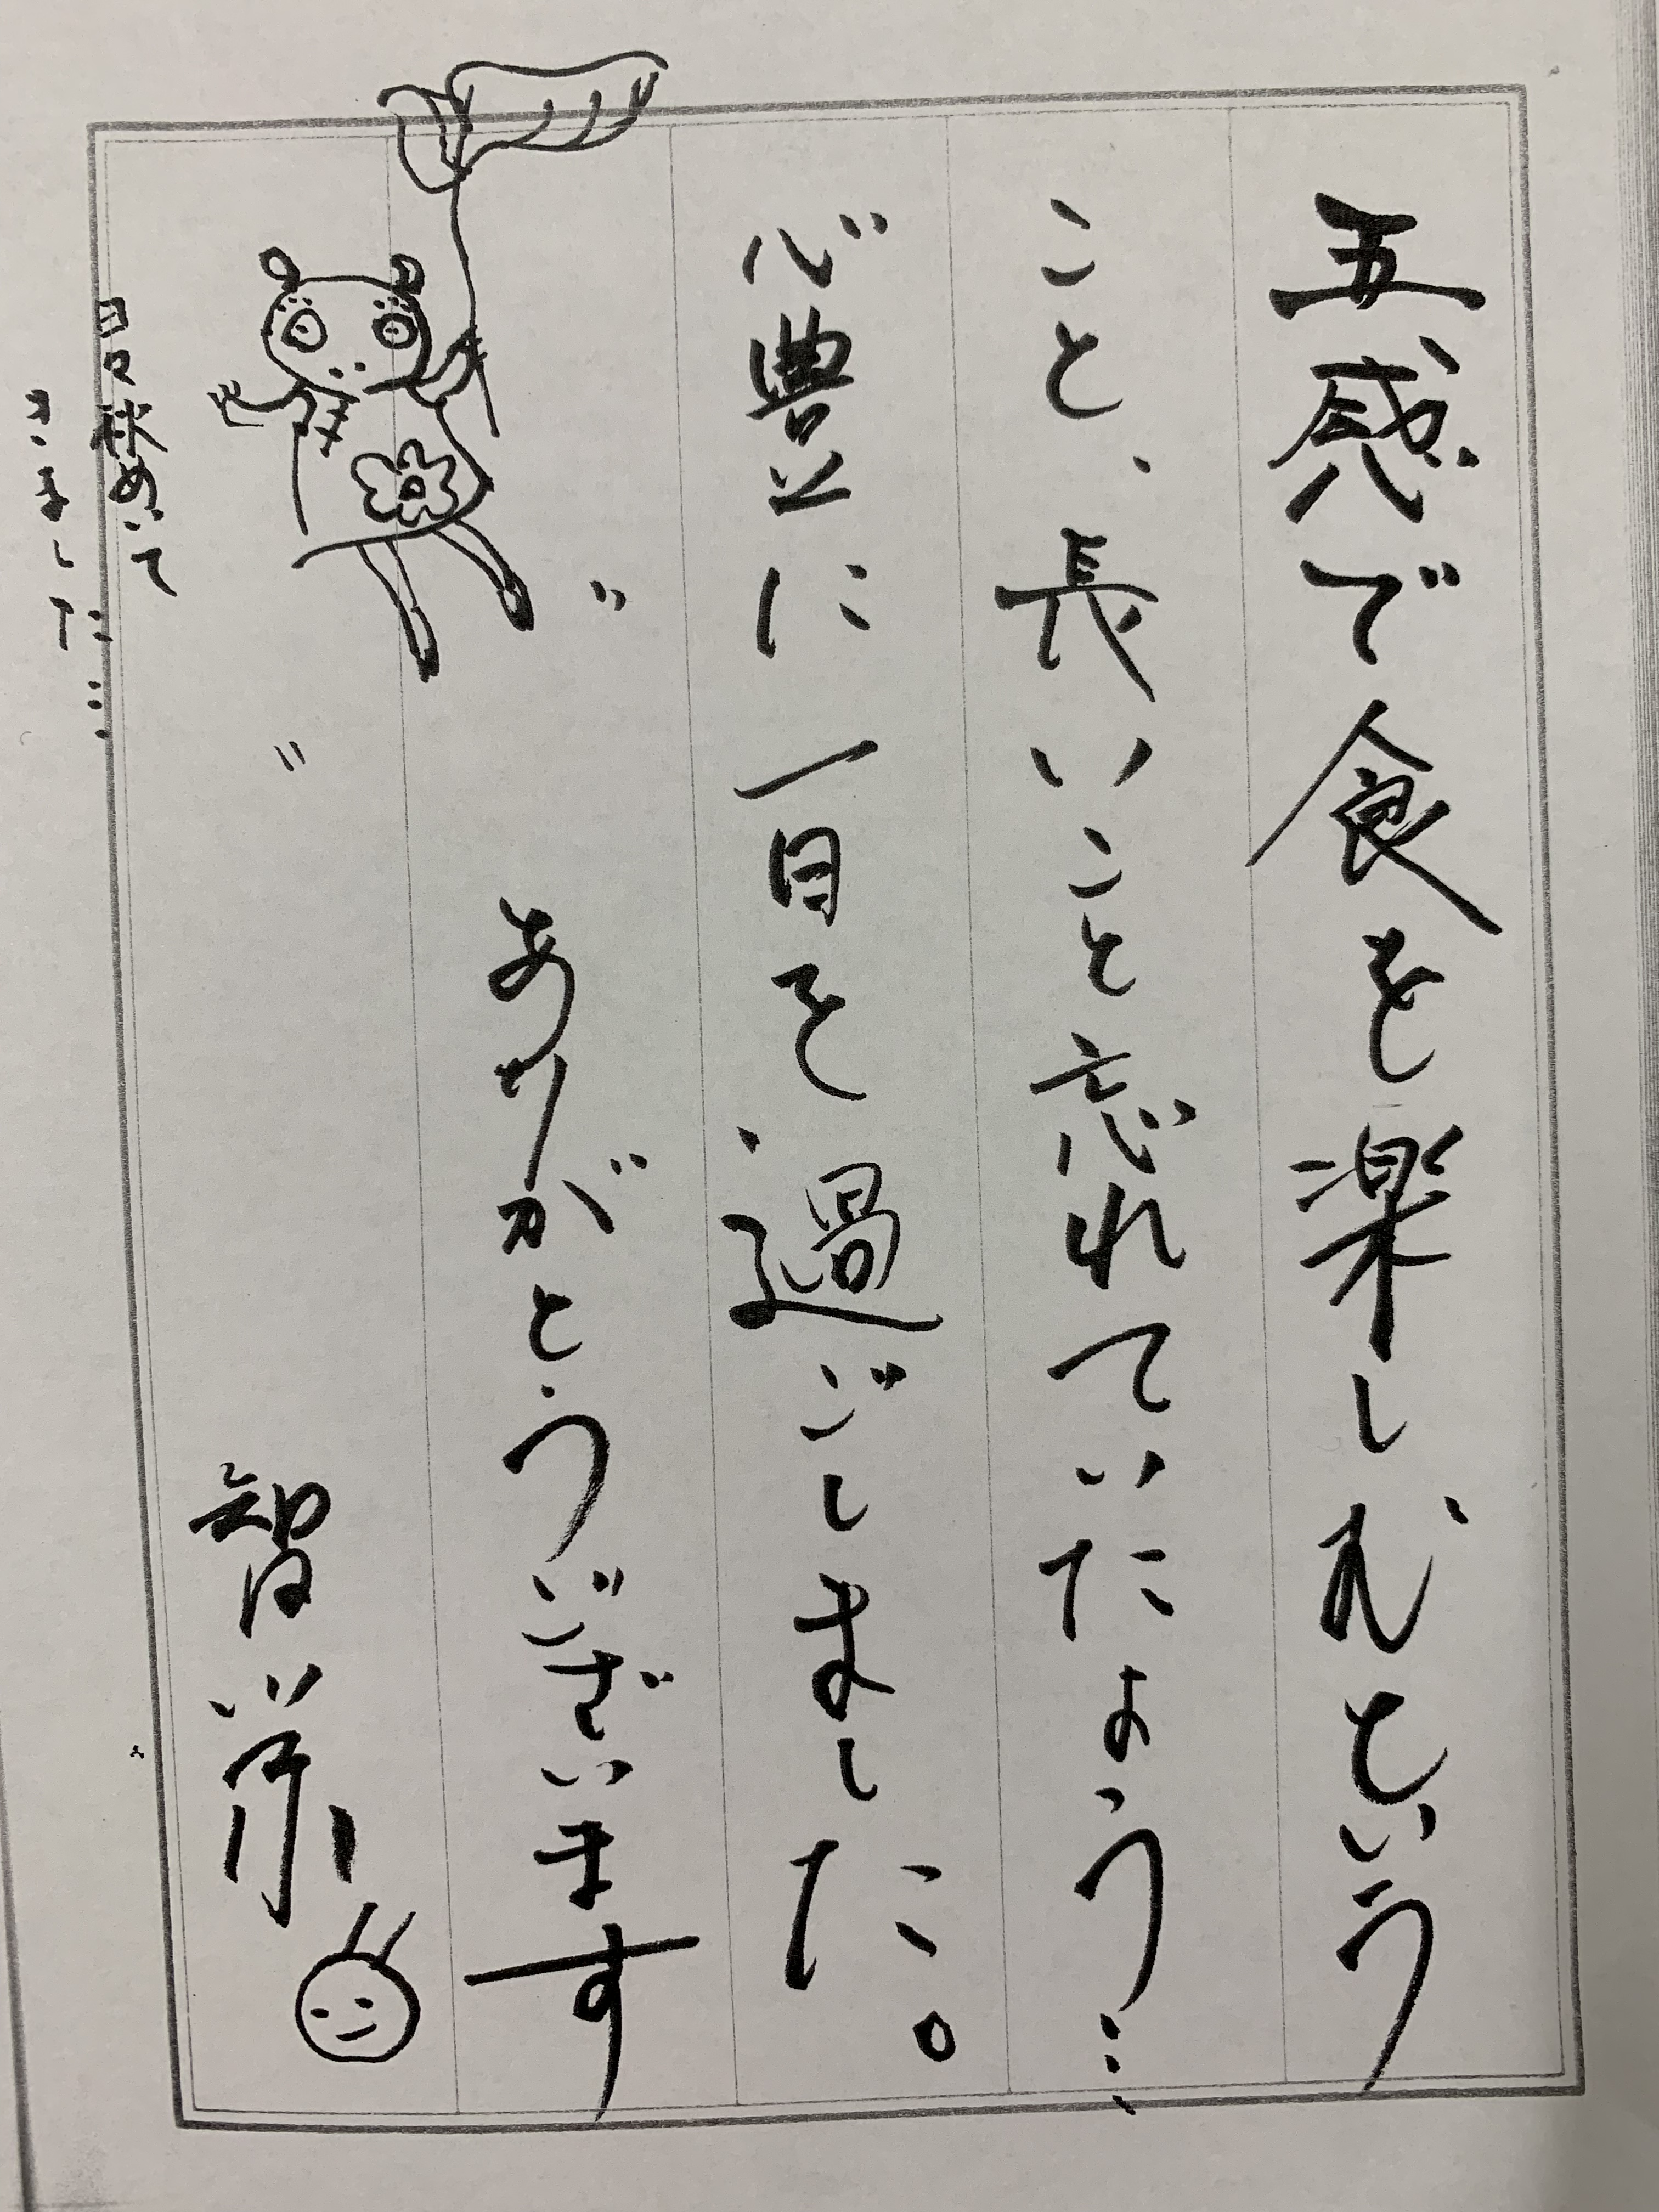 五感で食を楽しむという
こと、長いこと忘れていたよう…
心豊かに一日を過ごしました。
ありがとうございます
智栄
日々秋めいて
きました…